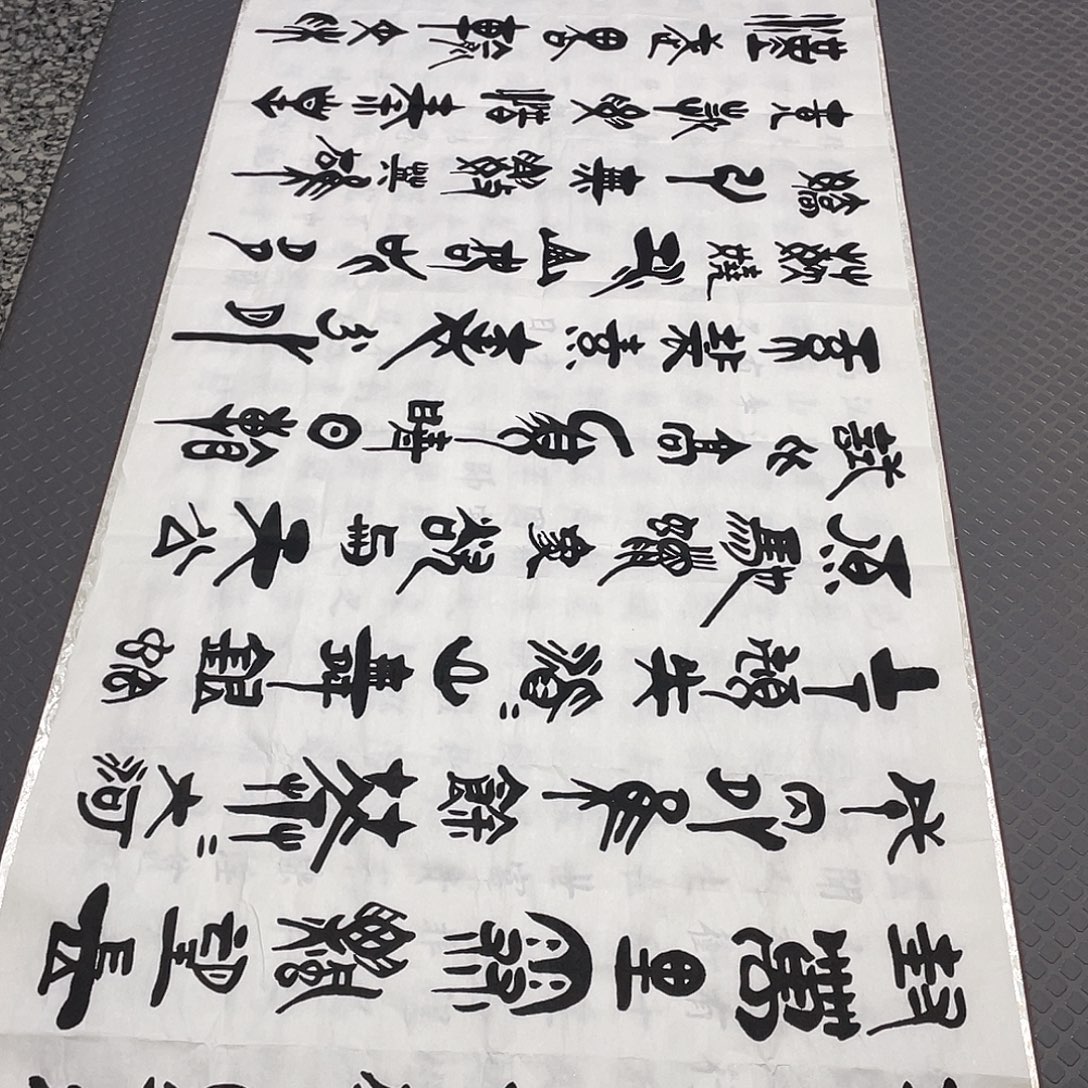 漢武略輸文采
競折腰惜秦皇
嬌引無數英雄
妖嬈江山如此多
紅裝素裹分外
試比高須晴日看
原馳蠟象欲与天公
上下頓失滔〻山舞銀蛇
城內外惟餘莽〻大河
封萬里雪飄望長